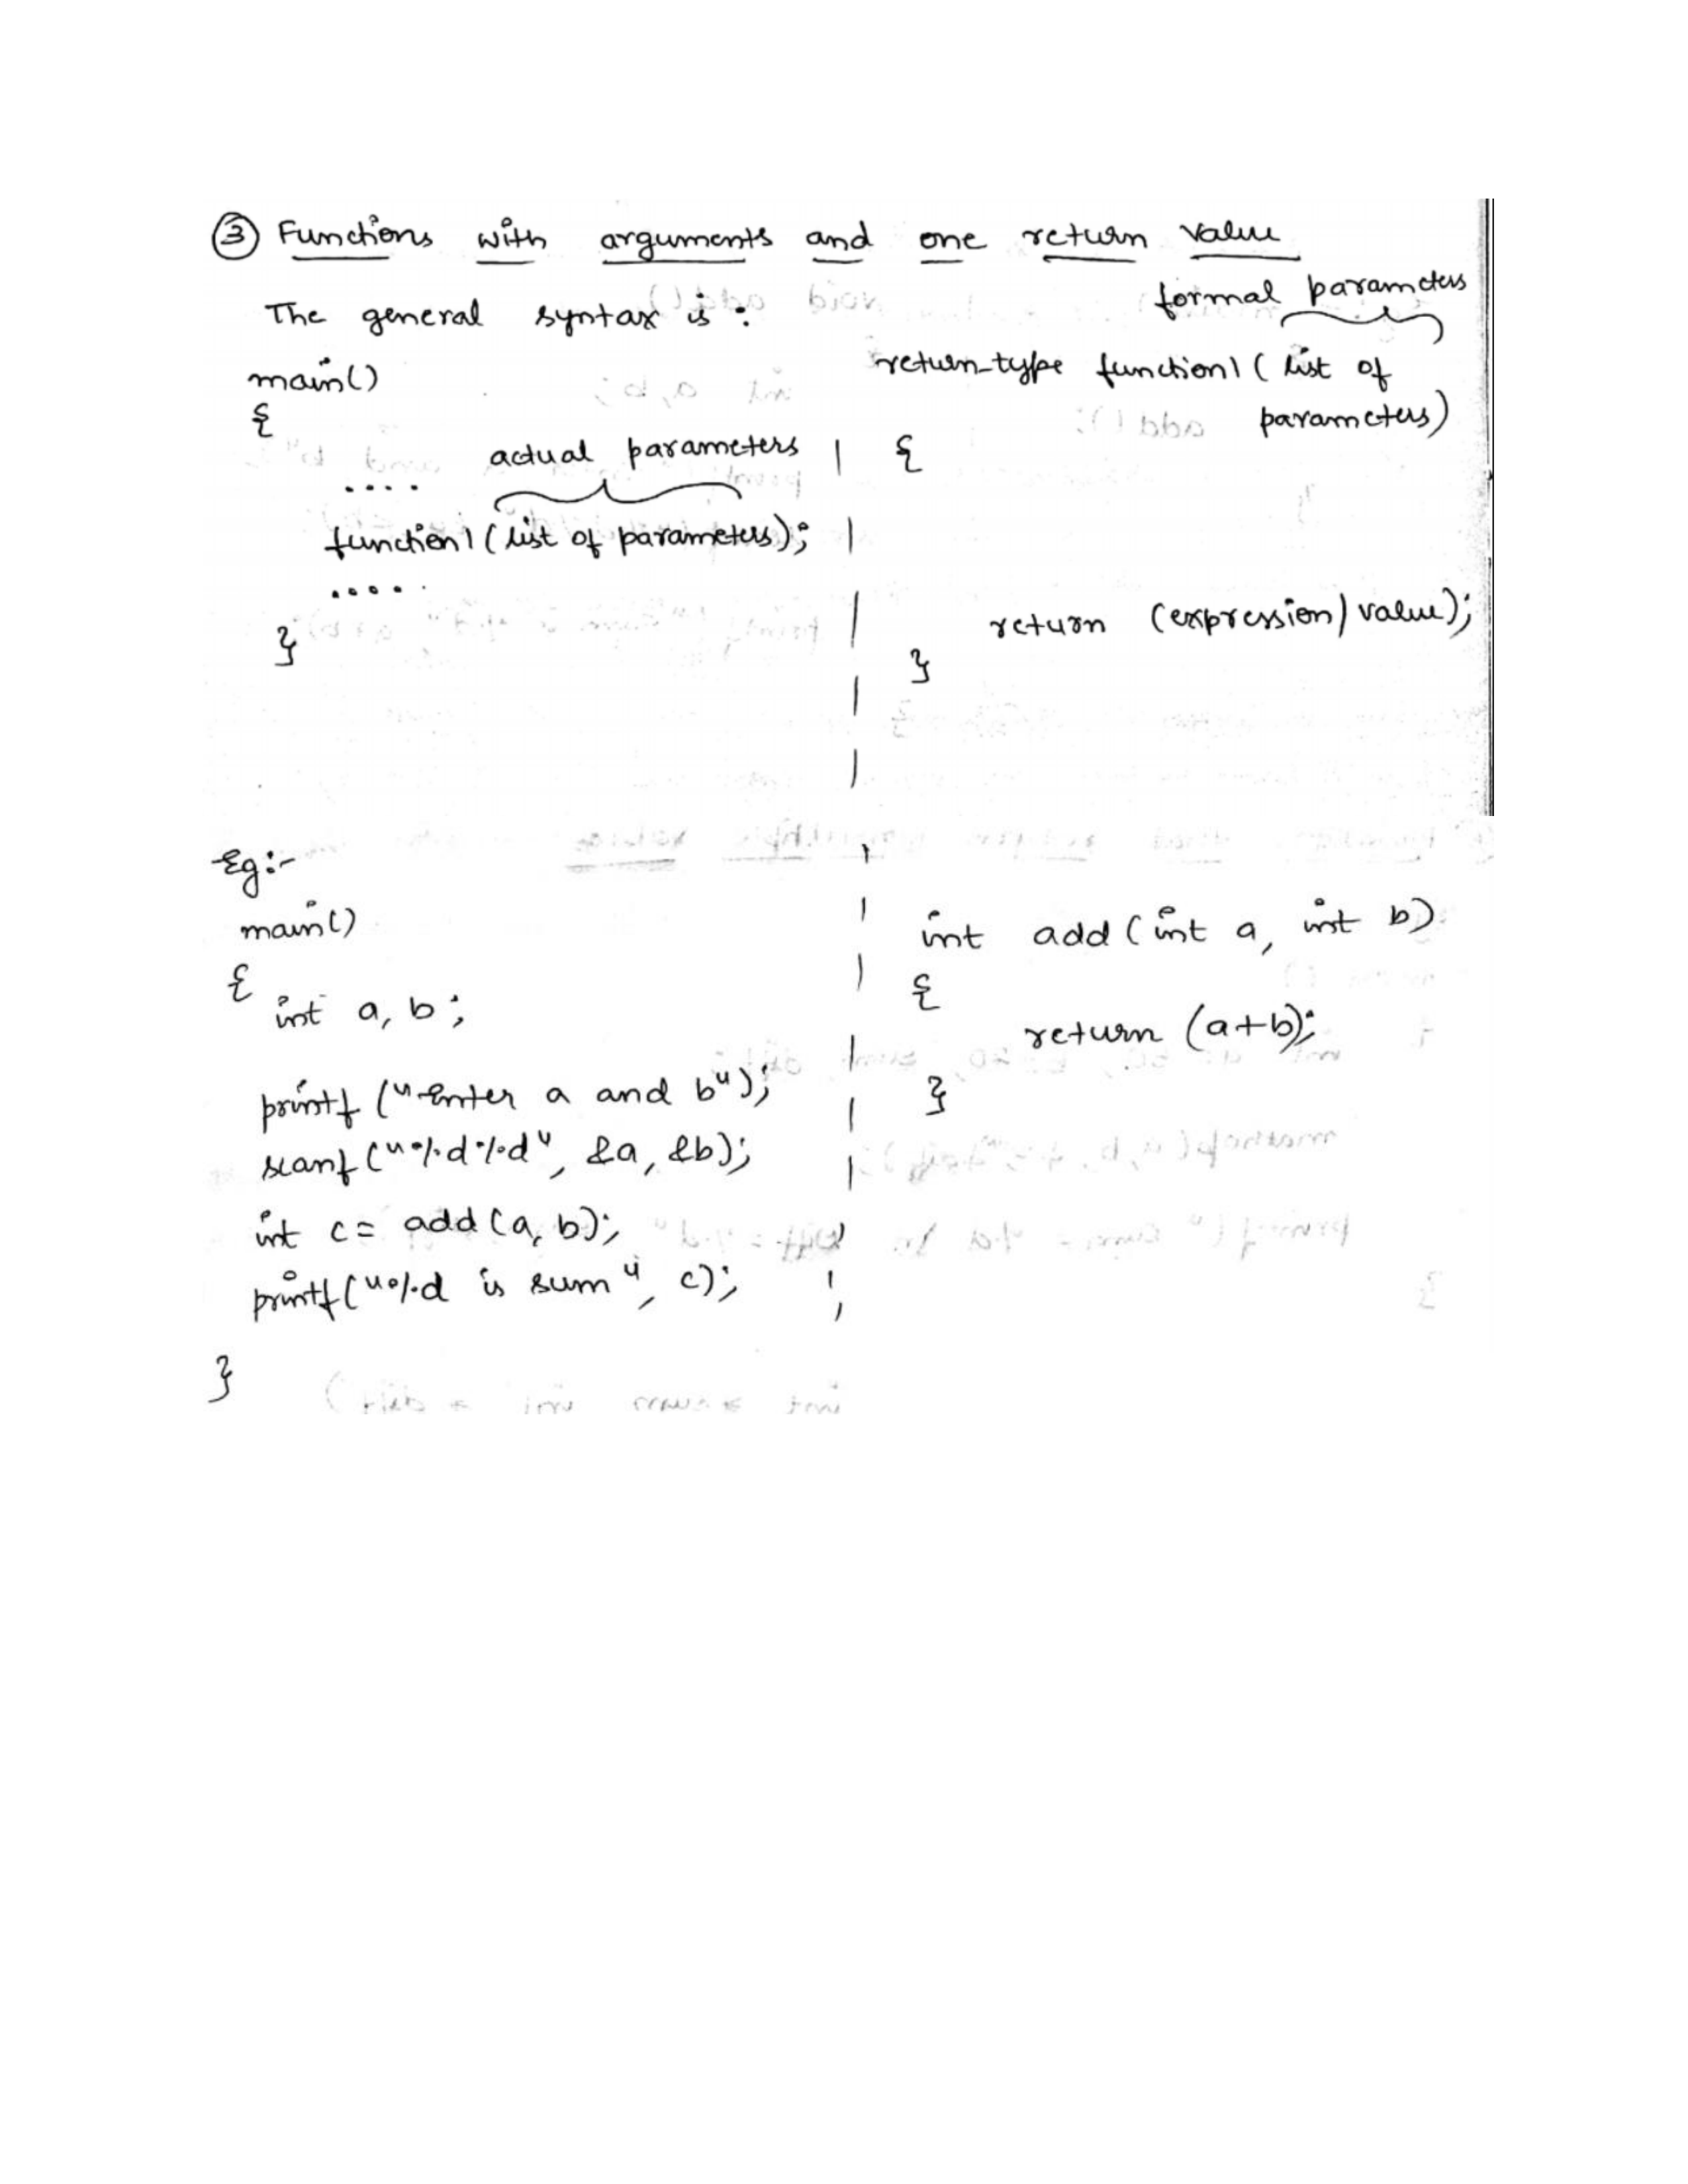 ③ Functions with arguments and one return value
The general syntax is :
main()
{
actual parameters
....
function1 (list of parameters);
.....
}
formal parameters
return_type function1 ( list of
parameters)
{
return (expression/value);
}
Eg:-
main()
{
int a, b ;
printf ("Enter a and b");
scanf ("%d%d", &a, &b);
int c = add (a, b);
printf("%d is sum", c);
}
int add (int a, int b)
{
return (a+b);
}